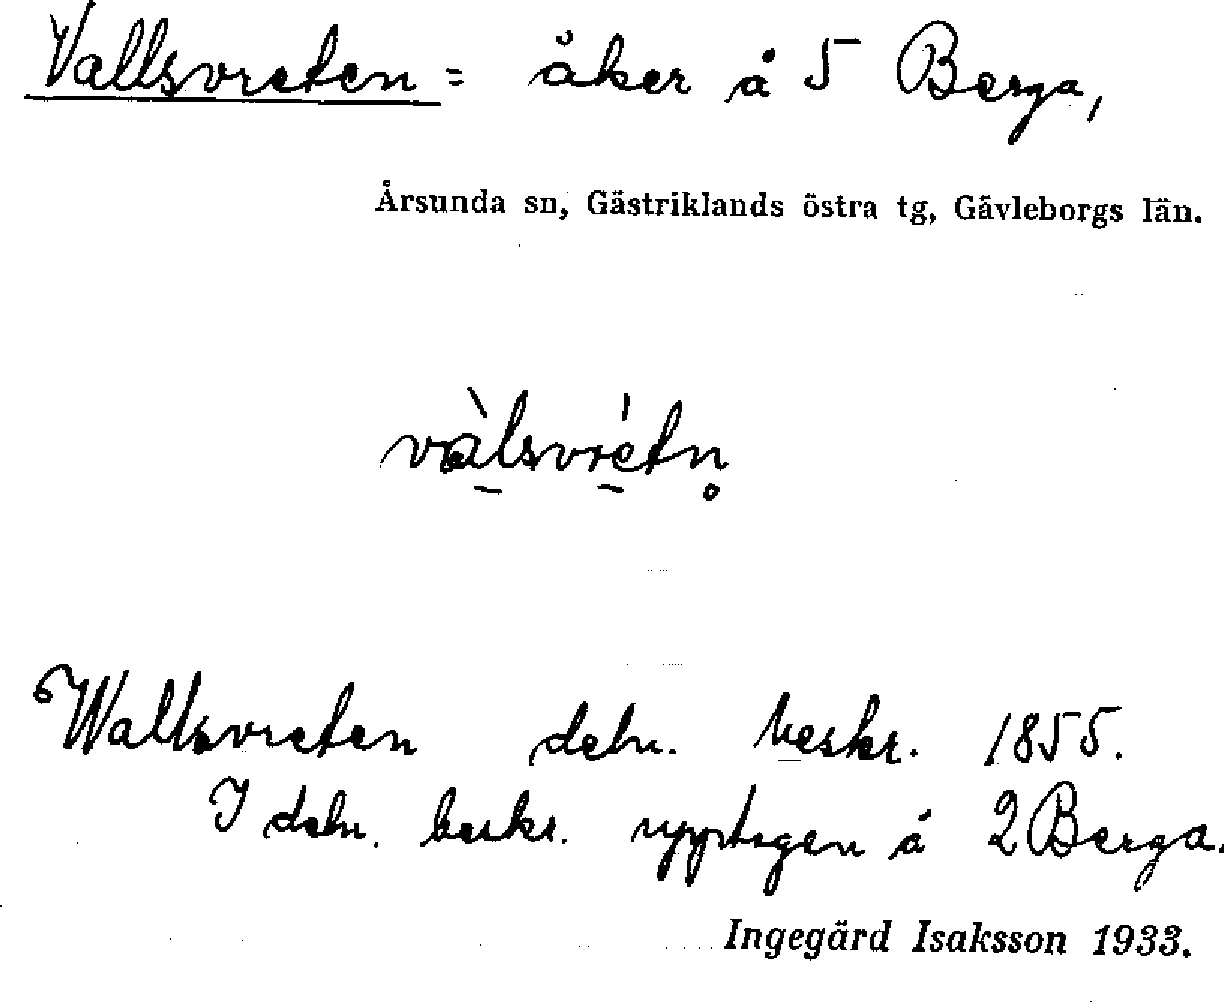 Vallsvreten = åker å 5 Berga,
Årsunda sn, Gästriklands östra tg, Gävleborgs län.
vàlsvrétn̥
Wallsvreten deln. beskr. 1855.
I deln. beskr. upptagen å 2 Berga.
Ingegärd Isaksson 1933.